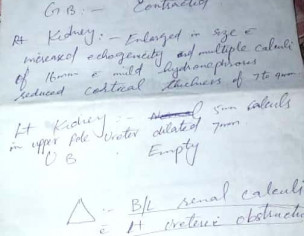 G B :- Contracted
Rt Kidney :- Enlarged in size c
increased echogenicity and multiple calculi
of 16mm c mild hydronephrosis
reduced cortical thickness of 7 to 9mm
Lt Kidney :- 5mm calculs
in upper pole Ureter dilated 7mm.
U B Empty
△ :- B/L renal calculi
c Rt ureteric obstructio